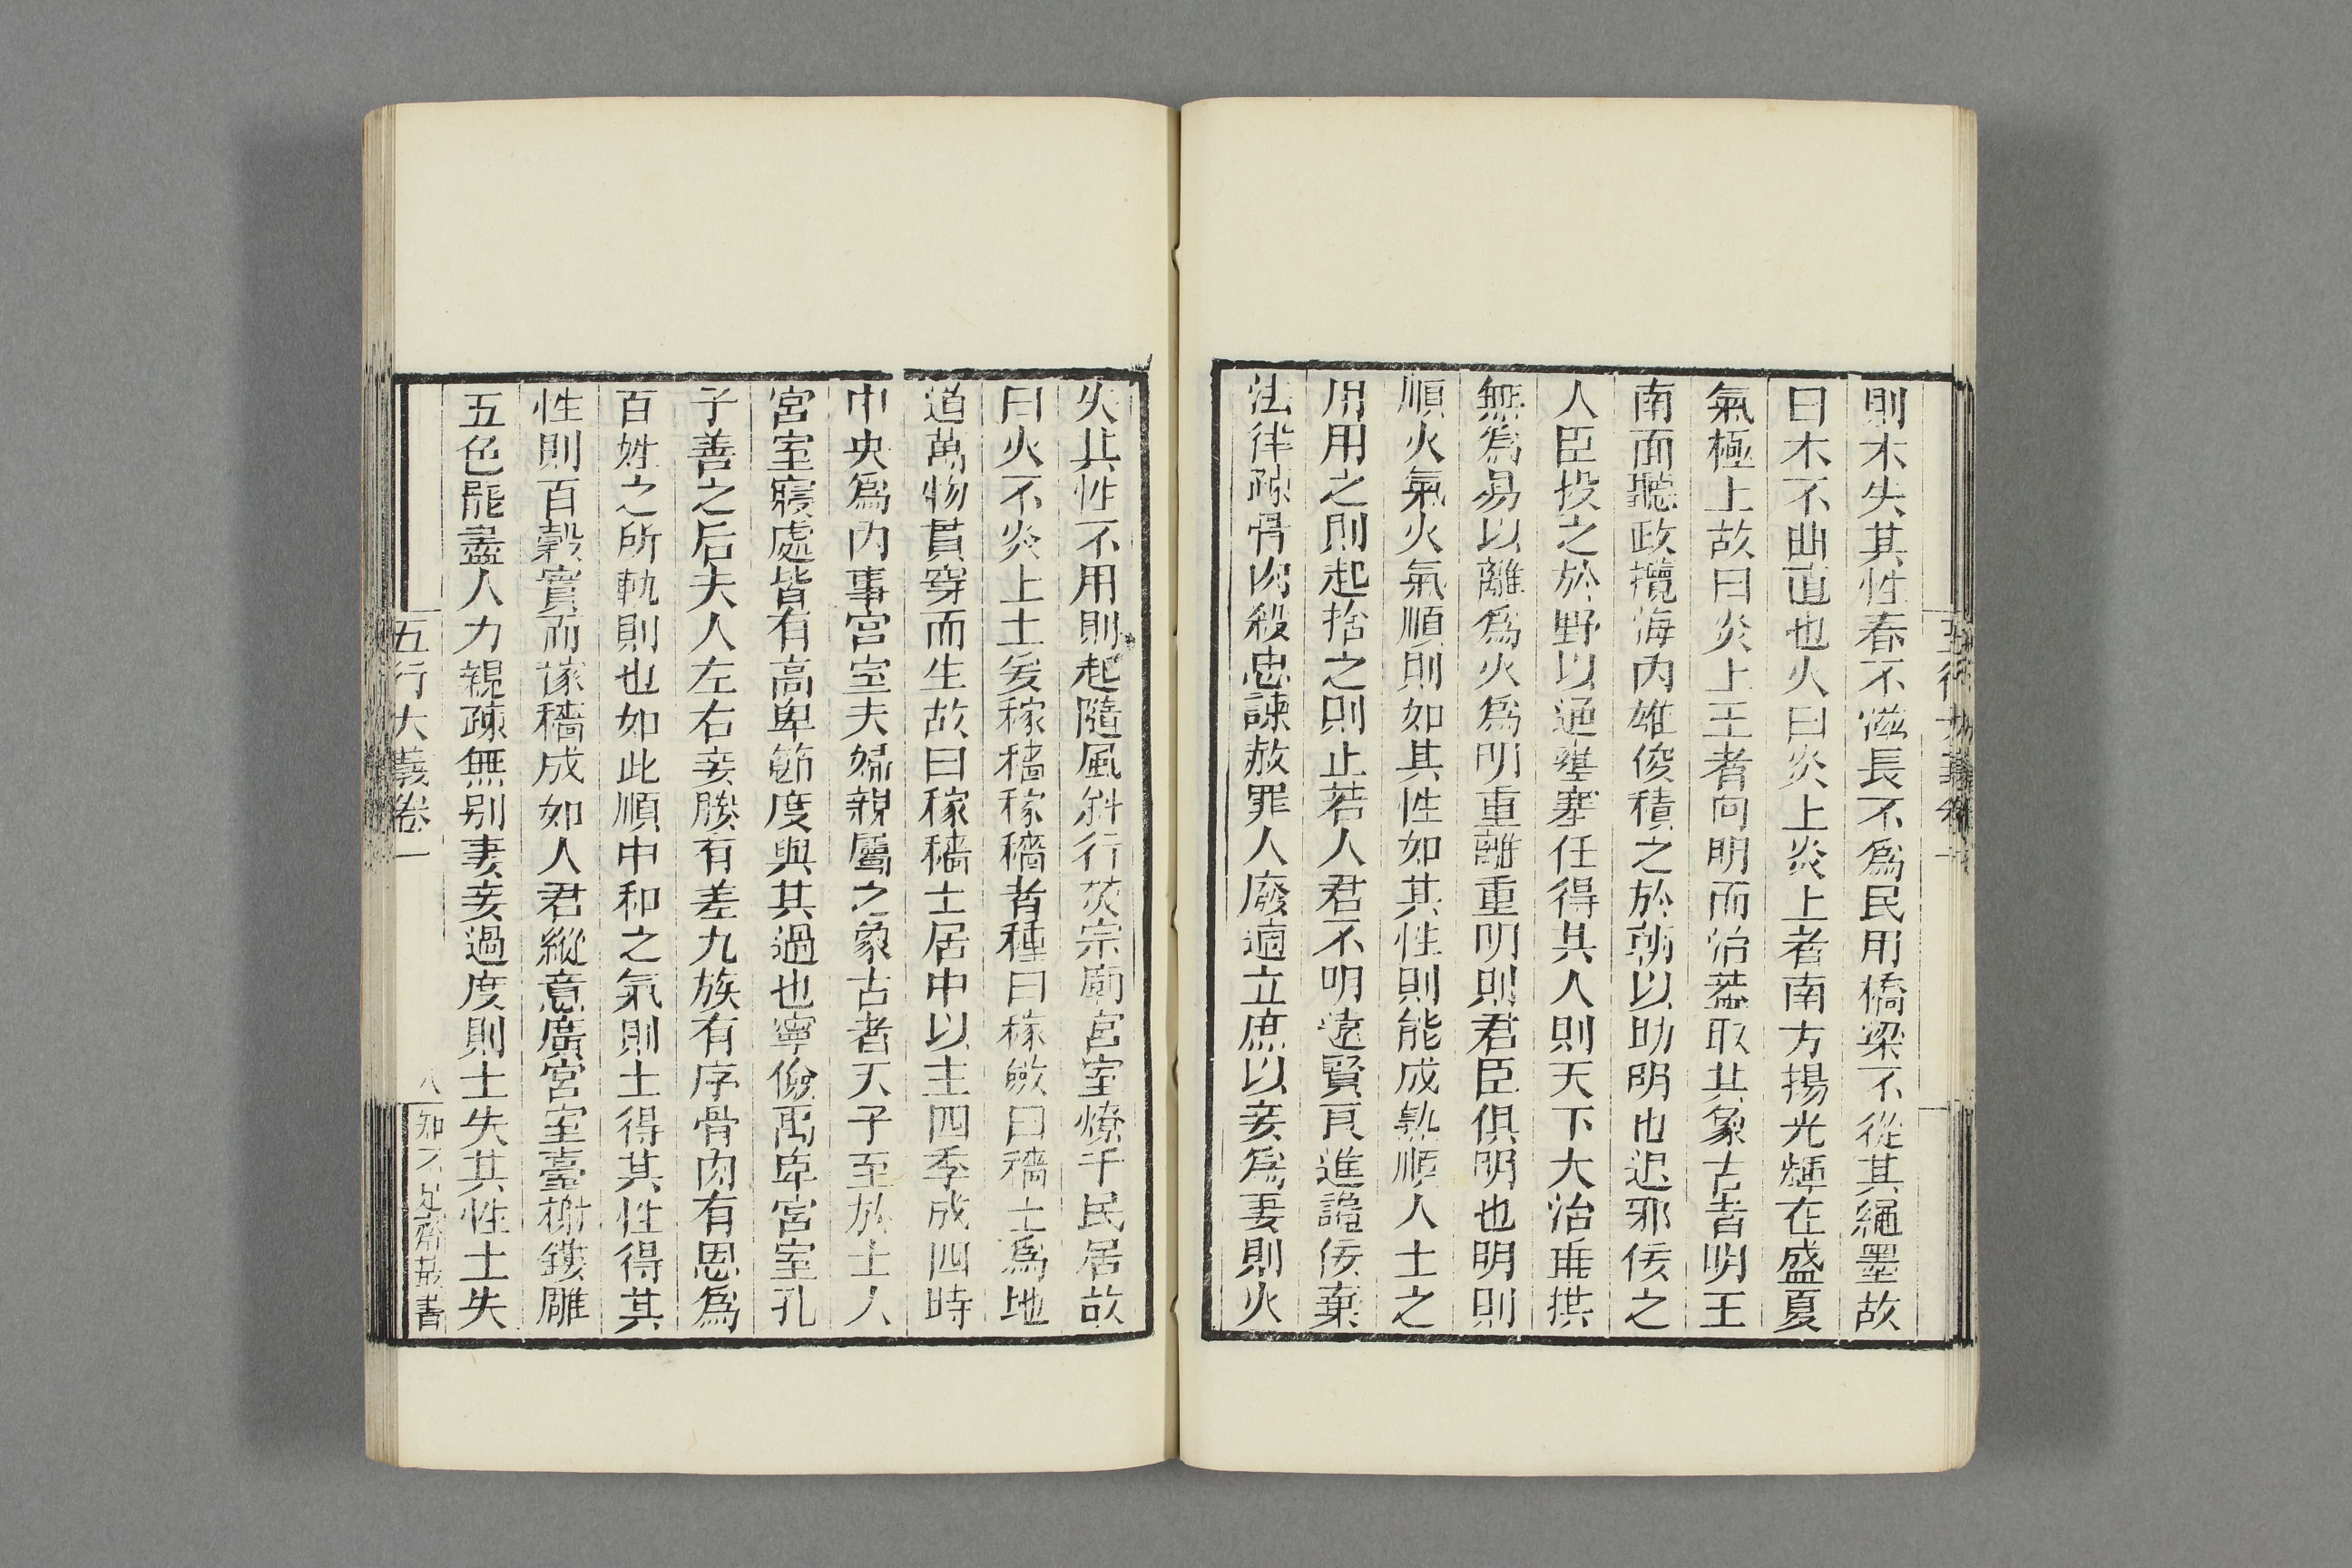 則木失其性春不滋長不爲民用橋梁不從其繩墨故
曰木不曲直也火曰炎上炎上者南方揚光煇在盛夏
氣極上故曰炎上王者向明而治葢取其象古者明王
南面聽政攬海内雄俊積之於朝以助明也退邪佞之
人臣投之於野以通壅塞任得其人則天下大治垂拱
無爲易以離爲火爲明重離重明則君臣俱明也明則
順火氣火氣順則如其性如其性則能成熟順人士之
用用之則起捨之則止若人君不明遠賢良進讒佞棄
法律疎骨肉殺忠諫赦罪人廢適立庶以妾爲妻則火
失其性不用則起隨風斜行焚宗廟宮室燎于民居故
曰火不炎上土爰稼穡稼穡者種曰稼斂曰穡土爲地
道萬物貫穿而生故曰稼穡土居中以主四季成四時
中央爲内事宮室夫婦親屬之象古者天子至於士人
宮室寢處皆有高卑節度與其過也寧儉禹卑宮室孔
子善之后夫人左右妾媵有差九族有序骨肉有恩爲
百姓之所軌則也如此順中和之氣則土得其性得其
性則百穀實而稼穡成如人君縱意廣宮室臺榭鏤雕
五色罷盡人力親疎無别妻妾過度則土失其性土失
五行大義卷一
八
知不足齋叢書